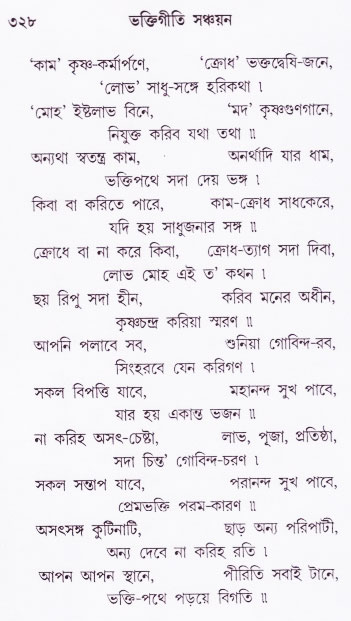 ৩২৮ ভক্তিগীতি সঞ্চয়ন
‘কাম’ কৃষ্ণ-কর্মার্পণে, ‘ক্রোধ’ ভক্তদ্বেষি-জনে,
‘লোভ’ সাধু-সঙ্গে হরিকথা ৷
‘মোহ’ ইষ্টলাভ বিনে, ‘মদ’ কৃষ্ণগুণগানে,
নিযুক্ত করিব যথা তথা ৷৷
অন্যথা স্বতন্ত্র কাম, অনর্থাদি যার ধাম,
ভক্তিপথে সদা দেয় ভঙ্গ ৷
কিবা বা করিতে পারে, কাম-ক্রোধ সাধকেরে,
যদি হয় সাধুজনার সঙ্গ ৷৷
ক্রোধে বা না করে কিবা, ক্রোধ-ত্যাগ সদা দিবা,
লোভ মোহ এই ত’ কথন ৷
ছয় রিপু সদা হীন, করিব মনের অধীন,
কৃষ্ণচন্দ্র করিয়া স্মরণ ৷৷
আপনি পলাবে সব, শুনিয়া গোবিন্দ-রব,
সিংহরবে যেন করিগণ ৷
সকল বিপত্তি যাবে, মহানন্দ সুখ পাবে,
যার হয় একান্ত ভজন ৷৷
না করিহ অসৎ-চেষ্টা, লাভ, পূজা, প্রতিষ্ঠা,
সদা চিন্ত’ গোবিন্দ-চরণ ৷
সকল সন্তাপ যাবে, পরানন্দ সুখ পাবে,
প্রেমভক্তি পরম-কারণ ৷৷
অসৎসঙ্গ কুটিনাটি, ছাড় অন্য পরিপাটী,
অন্য দেবে না করিহ রতি ৷
আপন আপন স্থানে, পীরিতি সবাই টানে,
ভক্তি-পথে পড়য়ে বিগতি ৷৷